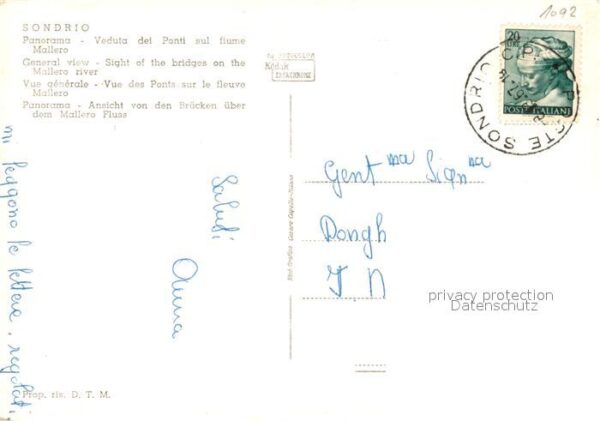 1092
SONDRIO
Panorama - Veduta dei Ponti sul fiume
Mallero
General view - Sight of the bridges on the
Mallero river
Vue générale - Vue des Ponts sur le fleuve
Mallero
Panorama - Ansicht von den Brücken über
dem Mallero Fluss
Kodak
EKTACHROME
20
LIRE
POSTE ITALIANE
POSTE SONDRIO C.P.
Gent ma Sign na
Dongh
I N
Saluti
Anna
mi leggono le lettere, regolati,
privacy protection
Datenschutz
Prop. ris. D. T. M.